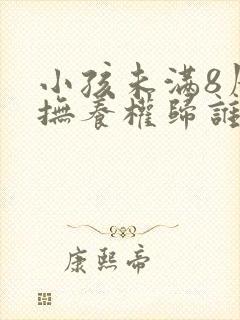 小孩未滿8
撫養權歸誰
康熙帝